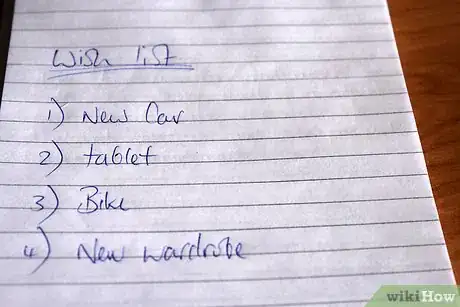 Wish list
1) New Car
2) tablet
3) Bike
4) New wardrobe
wikiHow